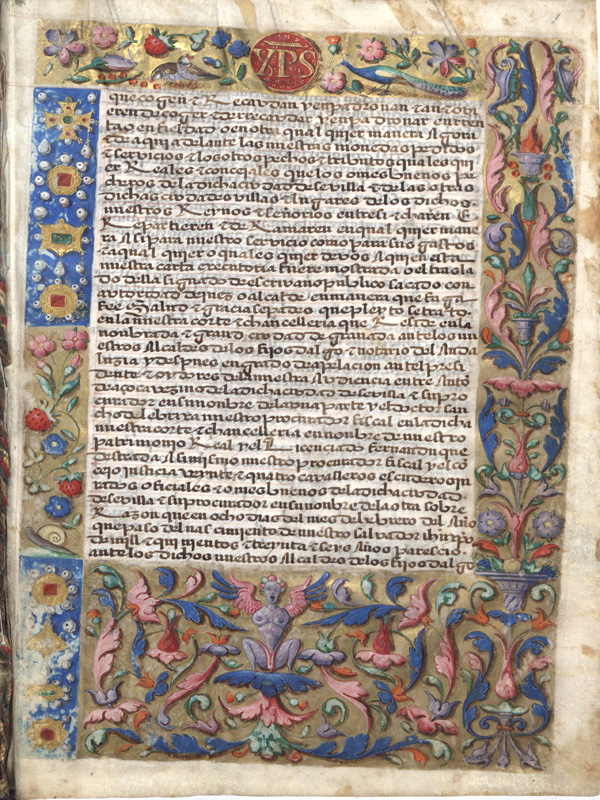 XPS
que cogen & Recavdan y enpadronan & an & ovi
eren de coger & de rrecavdar y enpadronar en rren
ta o en fieldad o en otra qual quier manera Agora
& de aqui adelante las nuestras monedas pedidos
& servicios & los otros pechos & tributos quales qui
er Reales & concejales que los omes buenos pe
cheros de la dicha ciudad de sevilla & de las otras
dichas ciudades villas & lugares de los dichos
nuestros Reynos & señorios entre si & charen E
Repartieren & deRamaren en qual quier mane
ra Asi para nuestro servicio como para sus gastos
& a qual quier o quales quier de vos A quien esta
nuestra carta executoria fuere mostrada o el trasla
do della signado de escrivano publico sacado con
avtoridad de juez o alcalde en manera que faga
fee Salud & gracia sepades que pleyto se trato
en la nuestra corte & chancelleria que Reside en la
nonbrada & grand ciudad de granada ante los nu
estros Alcaldes de los fijos dalgo & notario del Anda
luzia y despues en grado de apelacion ante el presi
dente & oydores de la nuestra Avdiencia entre Anto
de açoca vezino de la dicha ciudad de sevilla & su pro
curador en su nombre de la vna parte y el doctor san
cho de lebrixa nuestro procurador fiscal en la dicha
nuestra corte & chancelleria en nombre de nuestro
patrimonio Real y el Licenciado Fernand que
destrada Asi mismo nuestro procurador fiscal y el co
cejo justicia veynte & quatro cavalleros escuderos ju
rados oficiales & omes buenos de la dicha ciudad
de sevilla & su procurador en su nombre de la otra sobre
Razon que en ocho dias del mes de hebrero del Año
que paso del nascimiento de nuestro salvador ihuxpo
de mill & quinientos & treynta & seys Años parescio
ante los dichos nuestros Alcaldes de los fijos dalgo